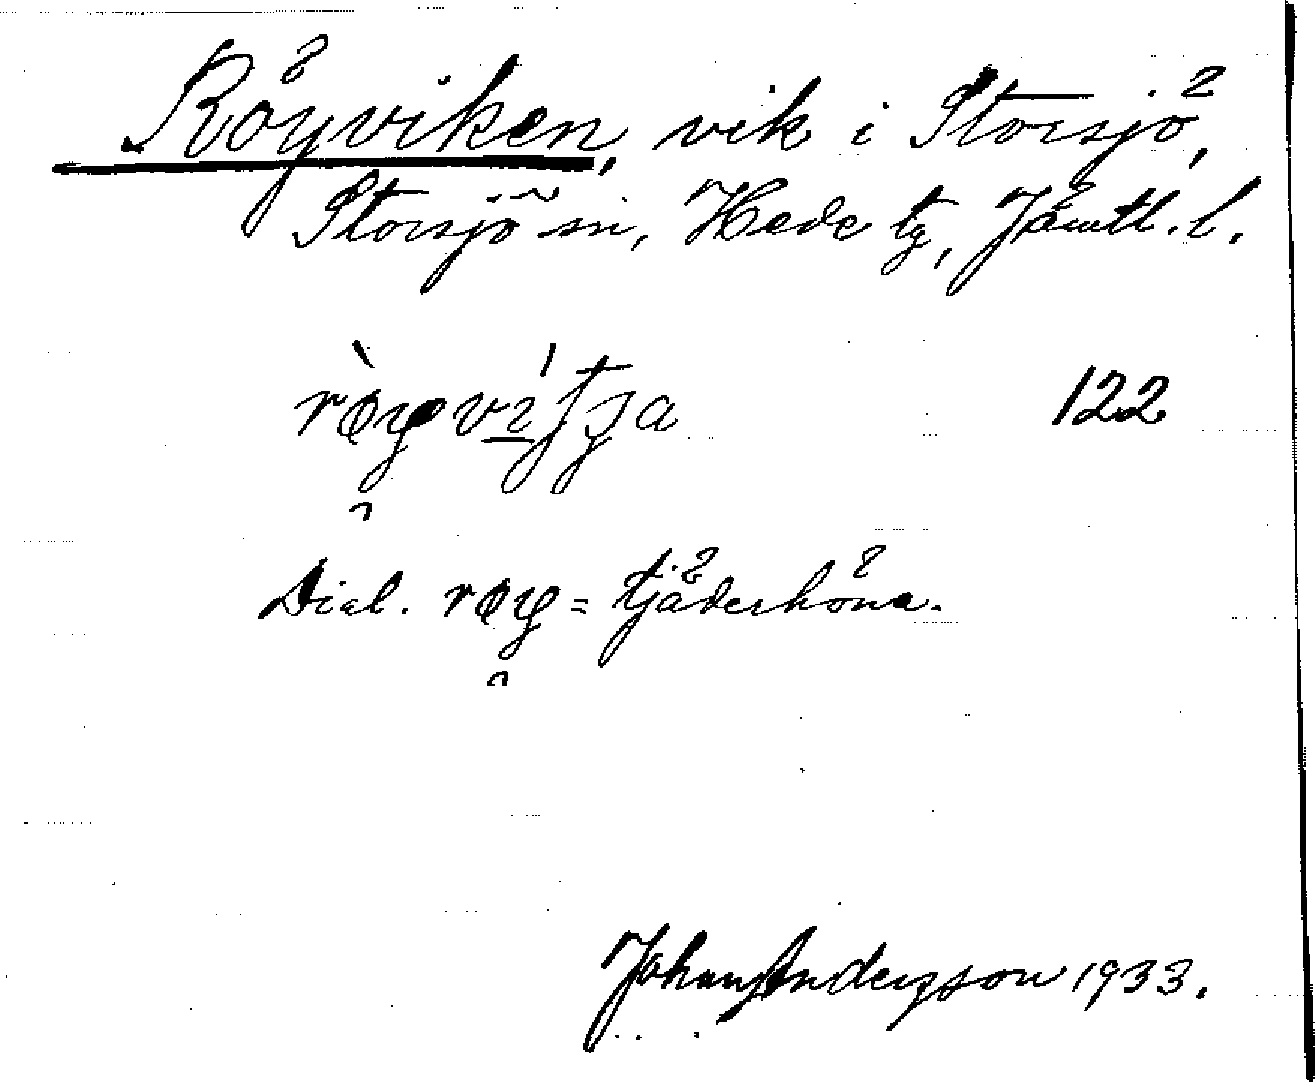 Röyviken, vik i Storsjö,
Storsjö sn, Hede tg, Jämtl. l.
122
Dial. røy = tjäderhöna.
Johan Andersson 1933.